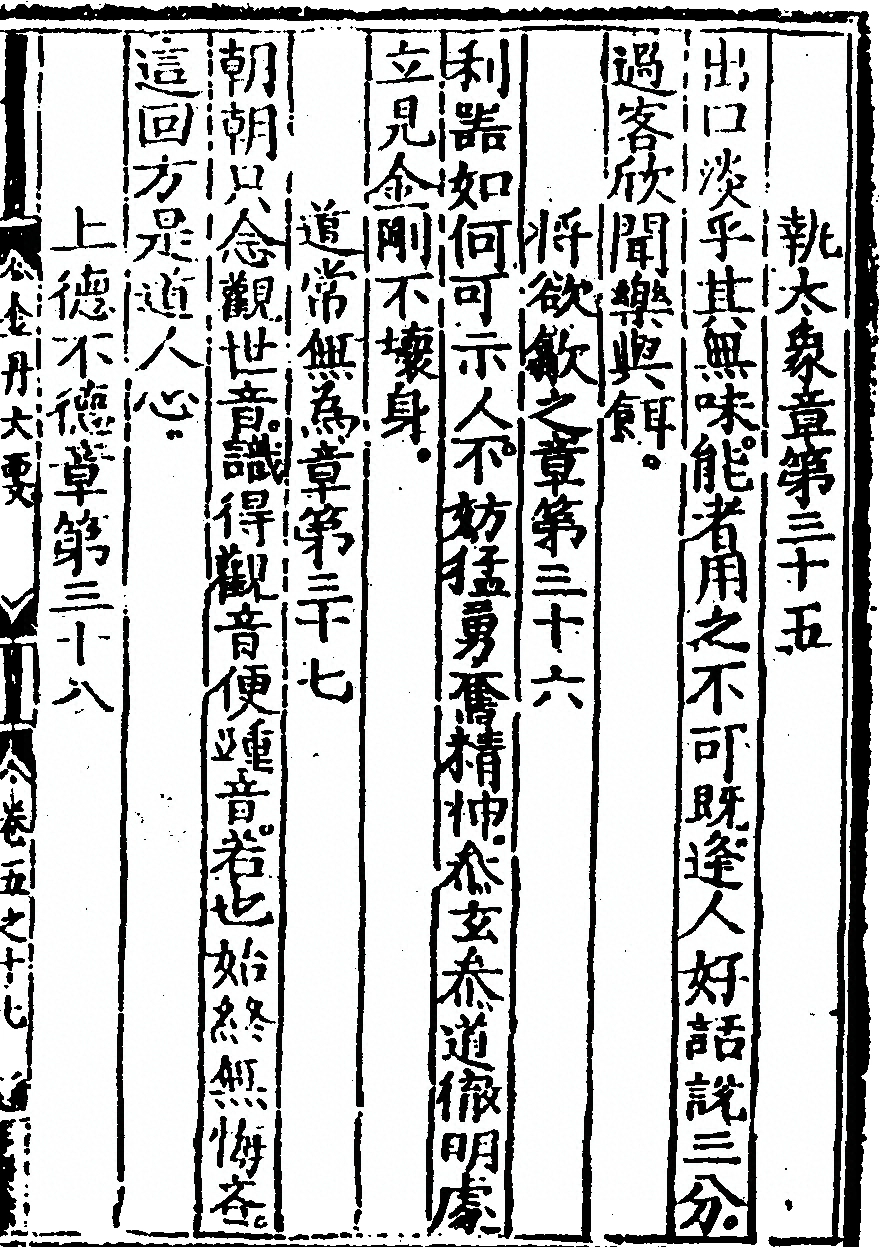 執大象章第三十五
出口淡乎其無味能者用之不可既逢人好話說三分
過客欣聞樂與餌
將欲歙之章第三十六
利器如何可示人不妨猛勇奮精神叅玄叅道徹明處
立見金剛不壞身
道常無為章第三十七
朝朝只念觀世音識得觀音便踵音若也始終無悔吝
這回方是道人心
上德不德章第三十八
金丹大要
卷五之十七